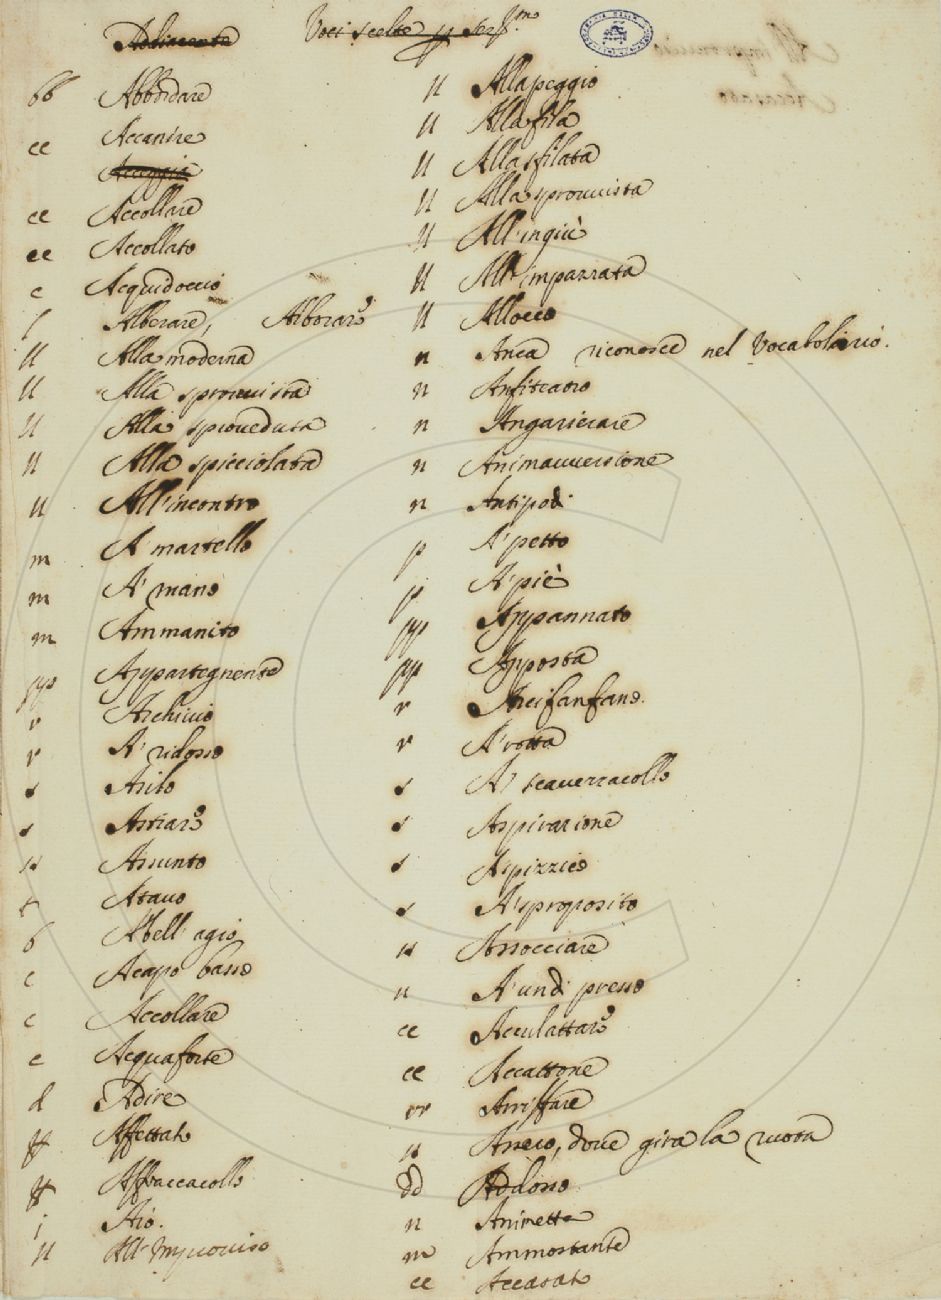 Voci scelte
bb Abbordare
cc Accanire
cc Accollare
cc Accollato
c Acquidoccio
l Alberare, Alborare
ll Alla moderna
ll Alla sprovvista
ll Alla sproveduta
ll Alla spicciolata
ll All'incontro
m A' martello
m A' mano
m Ammanito
pp Appartegnente
r Archivio
r A' ridosso
s Asilo
s Astiare
ss Assunto
t Atavo
b A' bell' agio
c A capo basso
c Accollare
c Acquaforte
d Adire
ff Affettato
ff Affraccacollo
j Aio.
ll All' improviso
ll Alla peggio
ll Alla fila
ll Alla sfilata
ll Alla sprovvista
ll All'ingiù
ll All'impazzata
ll Allocco
n Anca riconosce nel Vocabolario.
n Anfiteatro
n Angariccare
n Animavversione
n Antipodi
p A' petto
p A' piè
pp Appannato
pp Apposta
r Arcifanfano.
r A' rotta
s A' scavezzacollo
s Aspirazione
s A' spizzico
s A' sproposito
ss Associare
u A' un di presso
cc Acculattare
cc Accattone
rr Arriffare
ss Asseco, dove gira la ruota
dd Addosso
n Animette
m Ammostante
cc Accasato